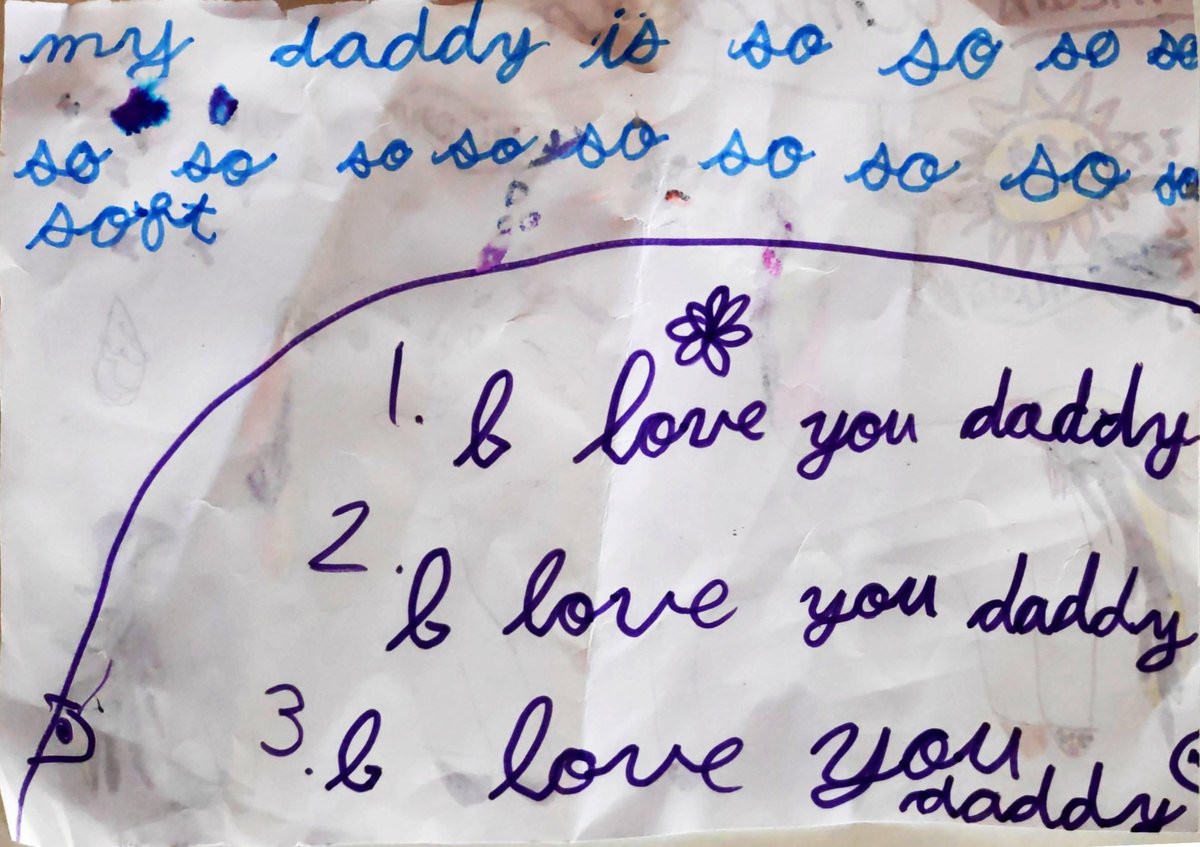 my daddy is so so so so
so so so so so so so so so
soft
1. I love you daddy
2. I love you daddy
3. I love you
daddy